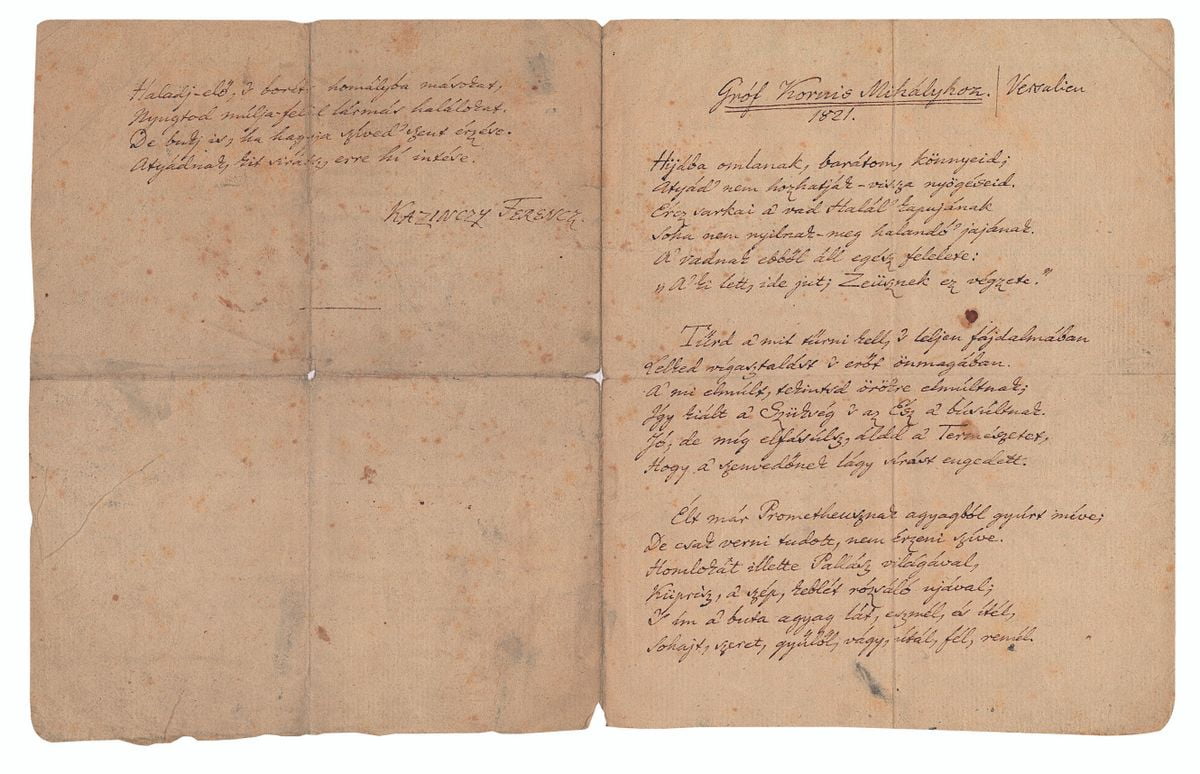 Haladj-elő, 's boríts homályba másokat,
Nyugtod múlja-felül lármás halálokat.
De buzj is, ha hagyja szíved' szent érzése.
Atyádnak, kit siratsz, erre hí intése.
KAZINCZY FERENCZ.
Gróf Kornis Mihályhoz. Versalien
1821.
Hijába omlanak, barátom, könnyeid;
Atyád' nem hozhatják-vissza nyögéseid.
Ércz sarkai a' vad Halál' kapujának
Soha nem nyílnak-meg halandó' jajának.
A' vadnak ebből áll egész felelete:
„A' ki lett, ide jut; Zeüsznek ez végzete."
Tűrd a' mit tűrni kell, 's leljen fájdalmában
Lelked vígasztalást 's erőt önmagában.
A' mi elmúlt, tekintsd örökre elmúltnak;
Így kiált a' Szükség 's az Ész a' búsúltnak.
Jó; de míg elfásúlsz, áldd a' Természetet,
Hogy a' szenvedőnek lágy sírást engedett.
Élt már Prometheusznak agyagból gyúrt míve;
De csak verni tudott, nem érzeni szíve.
Homlokát illette Pallász világával,
Küprisz, a' szép, keblét rózsáló ujával;
'S ím a' buta agyag lát, eszmél, és ítél,
Sohajt, szeret, gyűlöl, vágy, útál, fél, remél.